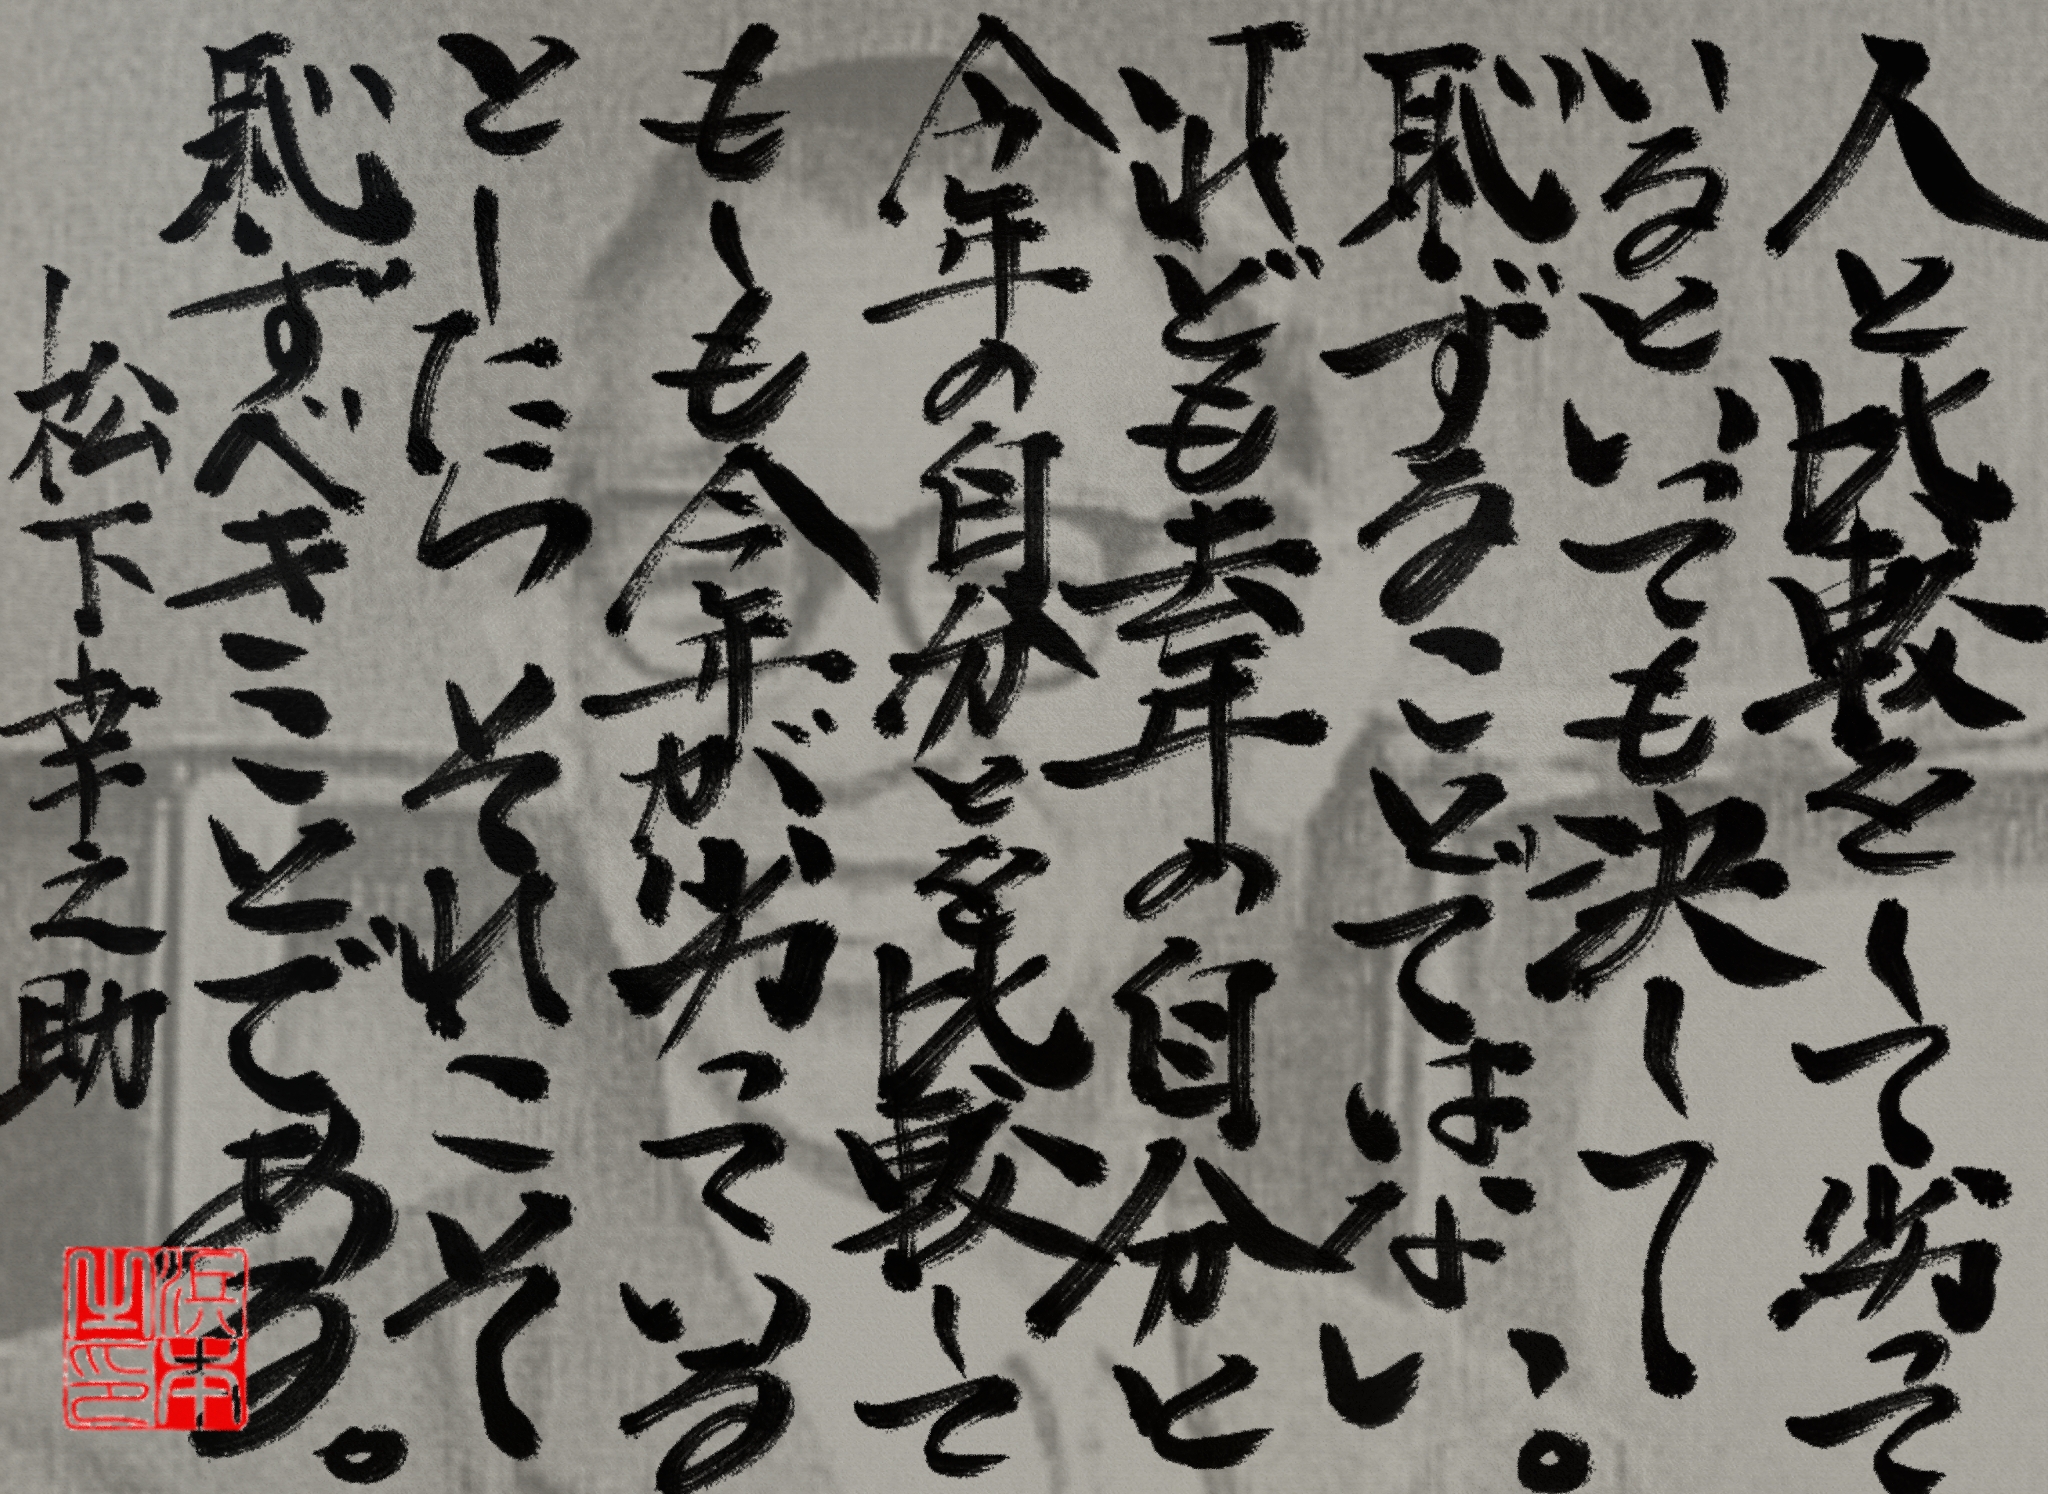 人と比較をして劣って
いるといっても決して
恥ずることではない。
けれども去年の自分と
今年の自分とを比較して
もしも今年が劣っている
としたら それこそ
恥ずべきことである。
松下幸之助
浜本之印